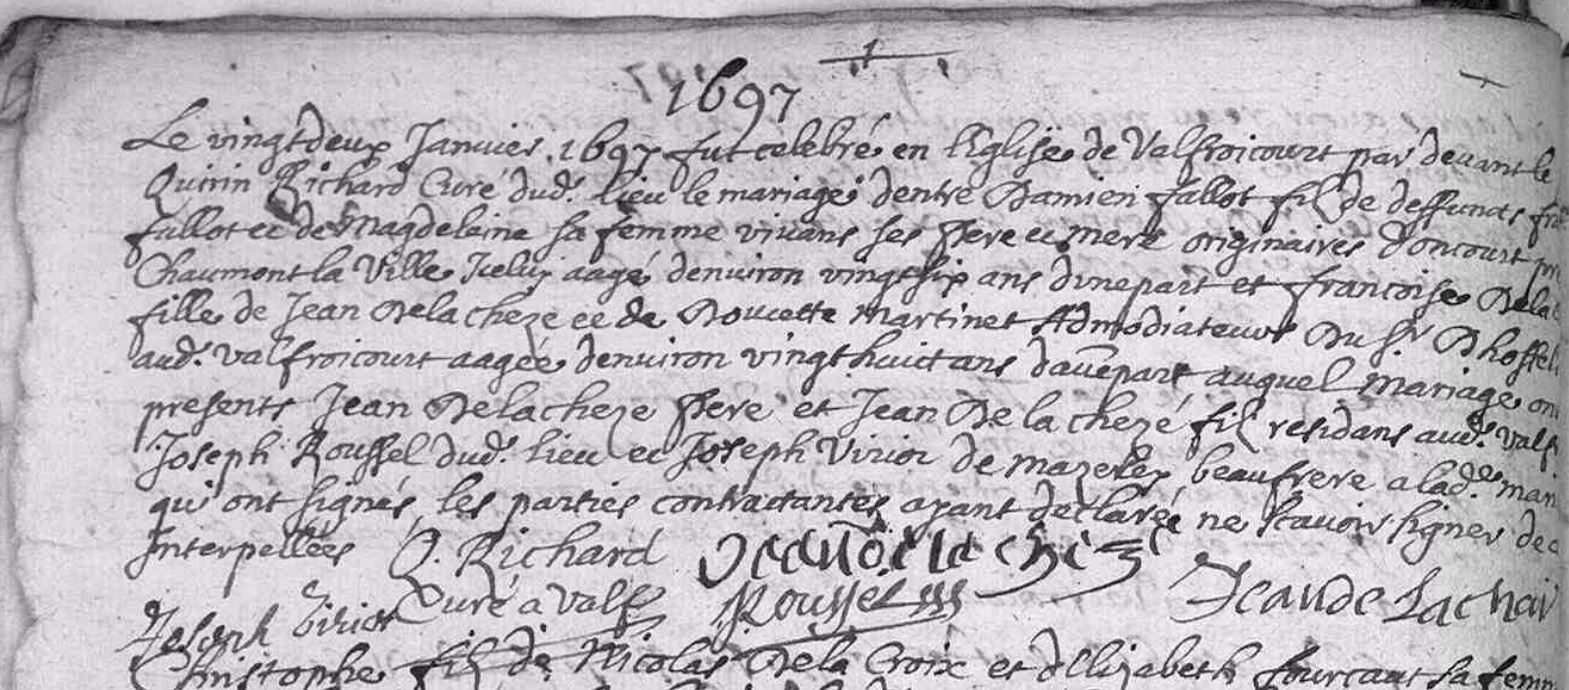 1697
Le vingtdeux Januier 1697 fut celebré en l'Eglise de Valfroicourt par deuant le
Quirin Richard Curé dud. lieu le mariage dentre Damien fallot fil de deffunct
fallot et de Magdelaine sa femme viuans ses Pere et mere originaires doncourt
Chaumont la Ville Iceluy aagé denuiron vingt six ans dune part et francoise Dela
fille de Jean Delacheze et de Doucette Martinet Admodiateur Du Sr. Dhossel
aud. Valfroicourt aagée denuiron vingt huict ans dau part auquel Mariage on
presents Jean Delacheze Pere et Jean De la chezé fil residans aud. Valf
Joseph Roussel dud. lieu et Joseph Viriot de mazerley beaufrere a lad. mari
qui ont signés les parties contractantes ayant declarée ne scauoir signer de
Interpellées Q. Richard Jean de la
Curé a Valf Roussel Jean de Lachai
Joseph Viriot
Christophe fil de Nicolas Dela Croix et d'Elizabeth fourcaut sa femm